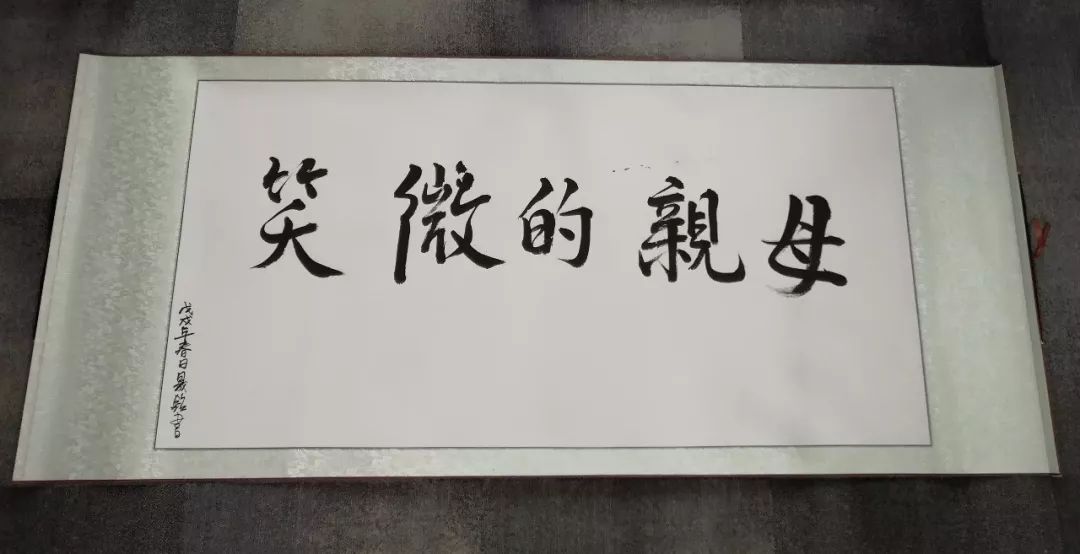 母親的微笑
戊戌年春日晟銘書